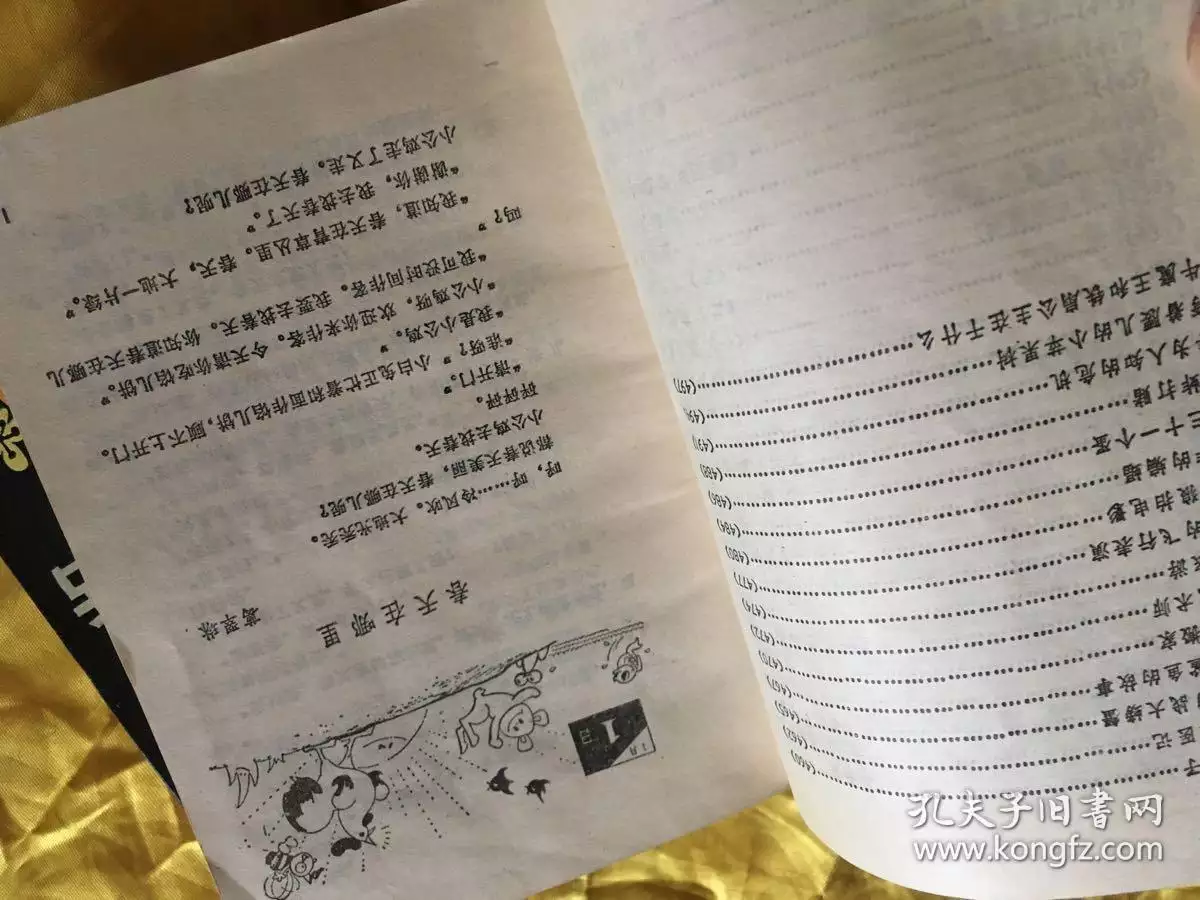 子……(460)
医记……(462)
战大螃蟹……(465)
鱼的故事……(467)
搬家……(470)
术师……(472)
游……(474)
的飞行表演……(477)
狼拍电影……(480)
的蝙蝠……(484)
三十一个蛋……(486)
打赌……(488)
为人知的危机……(491)
着腰儿的小苹果树……(494)
牛魔王和铁扇公主在干什么……(497)
1月
1日
春天在哪里
葛翠琳
呼,呼……冷风吹。大地光秃秃。
都说春天美丽,春天在哪儿呢?
小公鸡去找春天。
砰砰砰。
“请开门。”
“谁呀?”小白兔正忙着和面作馅儿饼,顾不上开门。
“我是小公鸡。”
“小公鸡呀,欢迎你来作客。今天请你吃馅儿饼。”
“我可没时间作客。我要去找春天。你知道春天在哪儿
吗?”
“我知道,春天在青草丛里。春天,大地一片绿。”
“谢谢你,我去找春天了。”
小公鸡走了又走。春天在哪儿呢?
1
孔夫子旧書网
www.kongfz.com